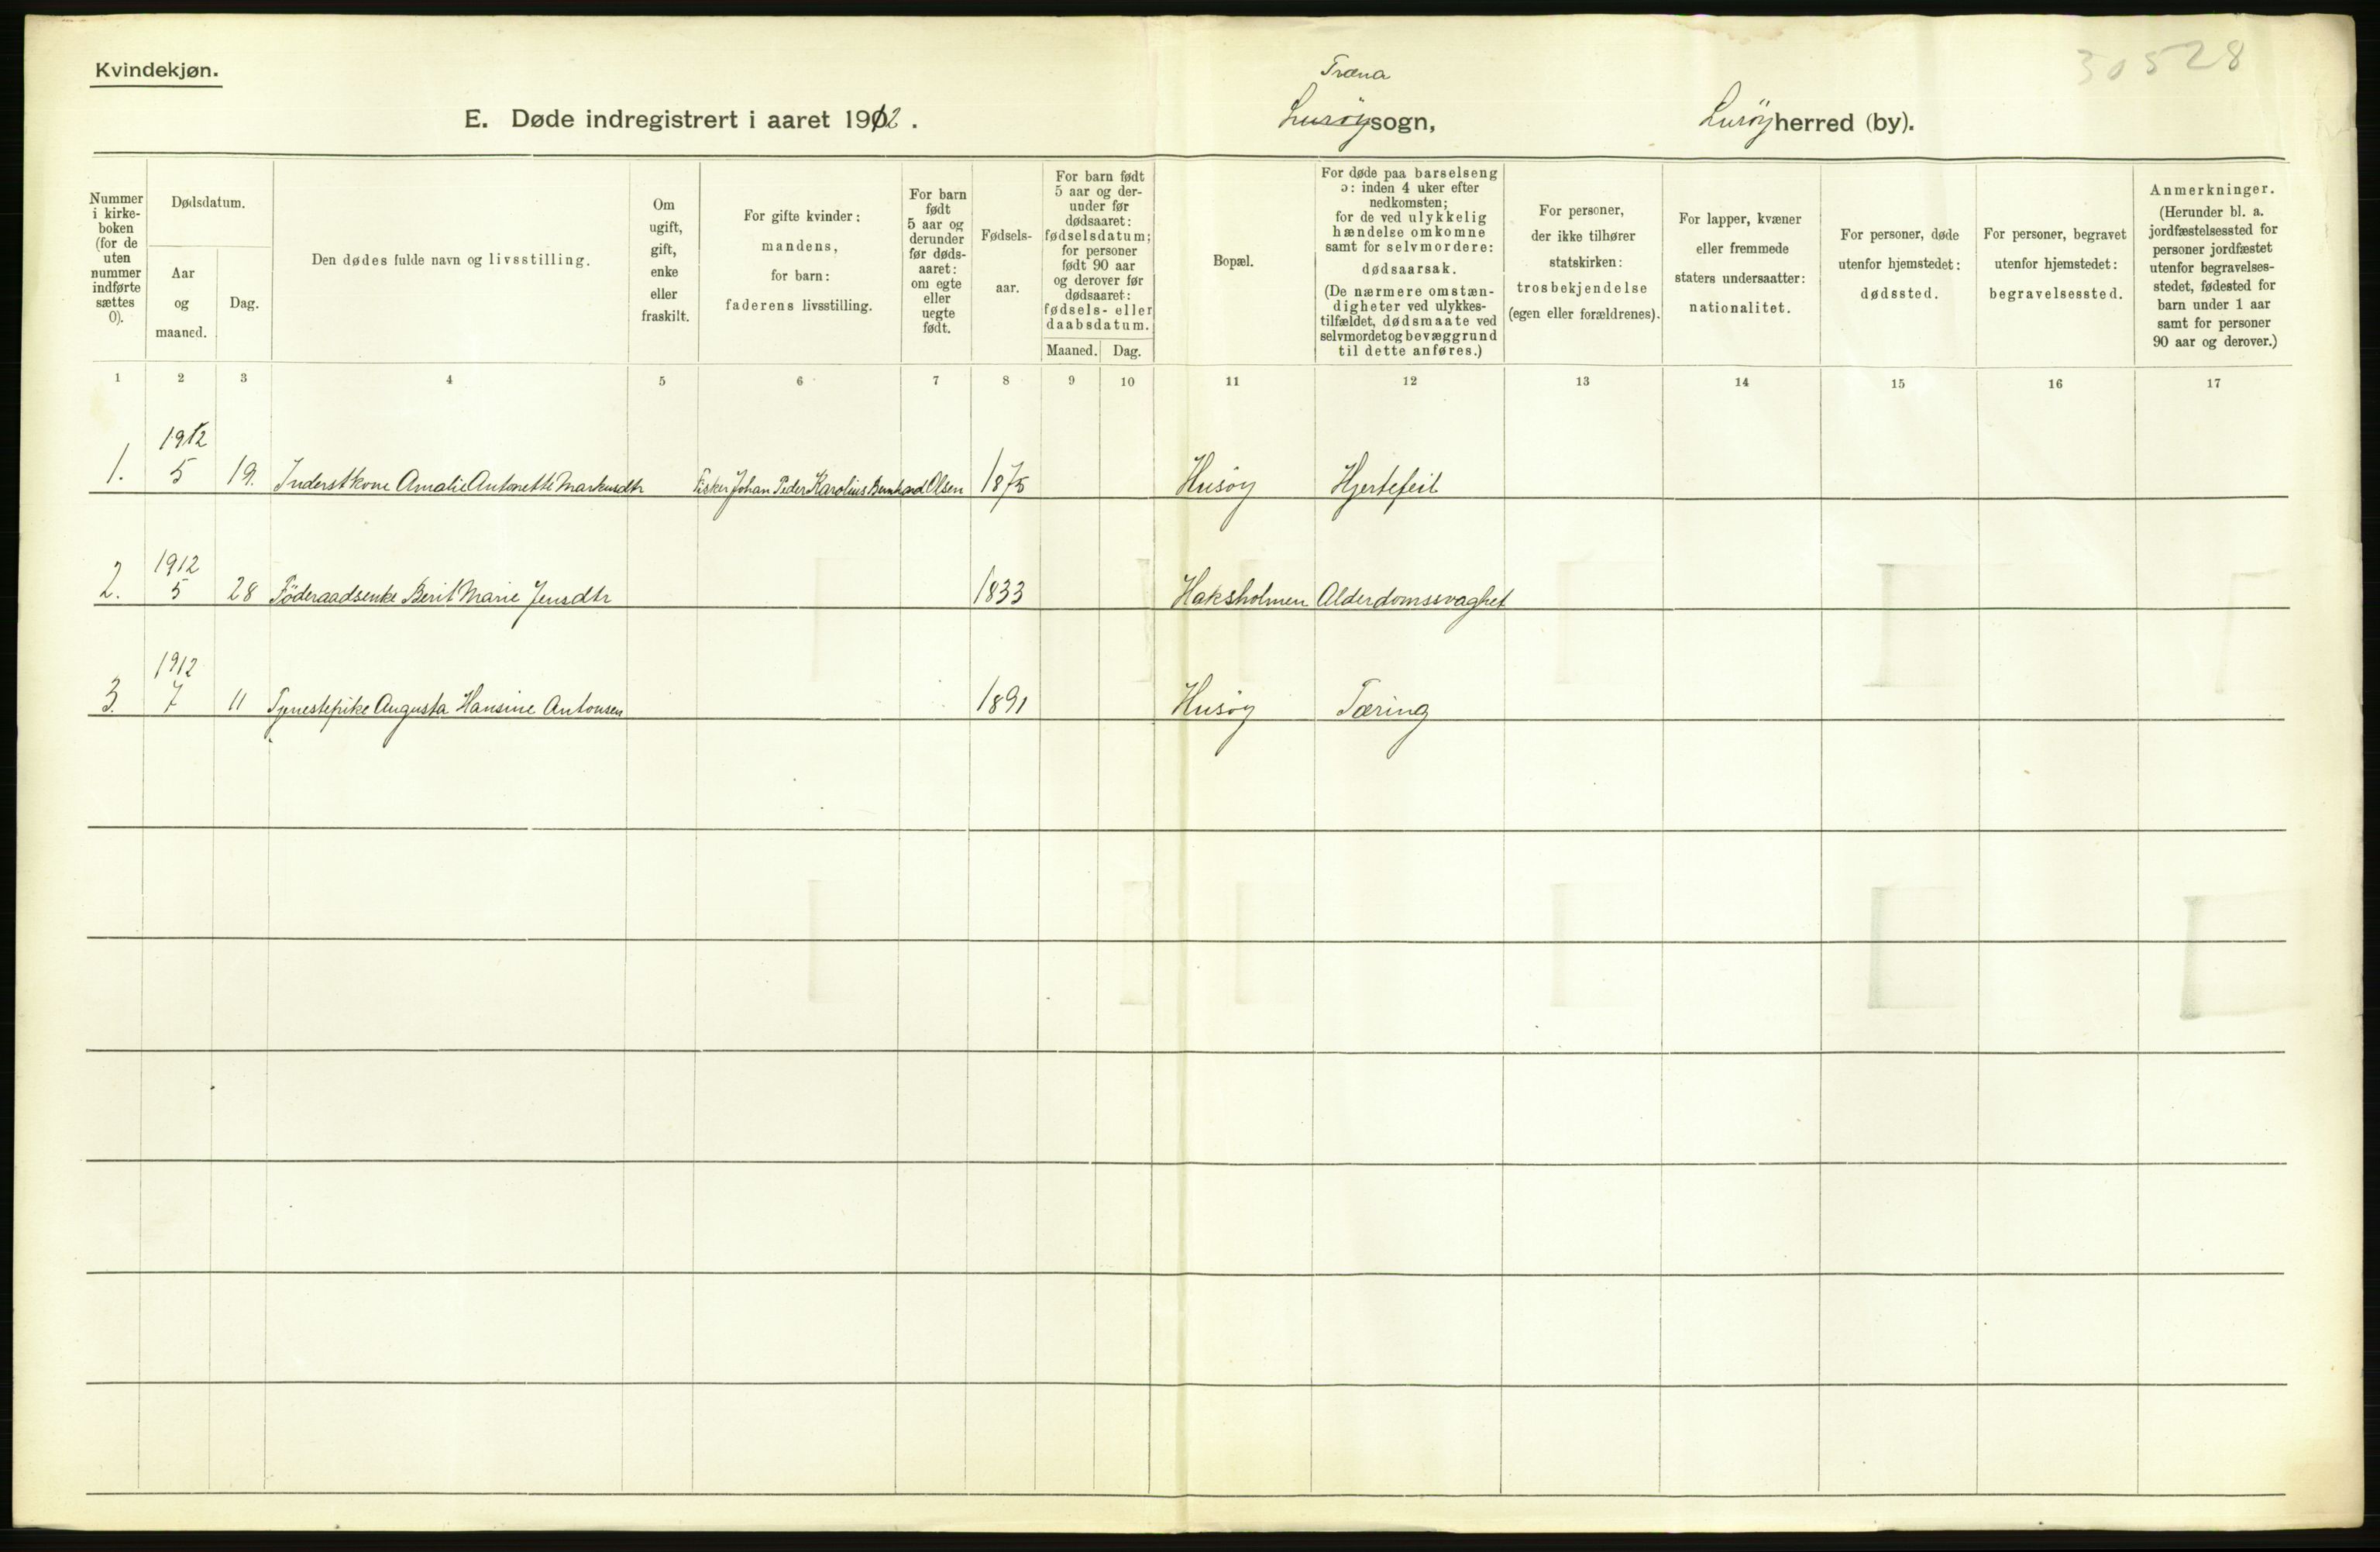 Kvindekjøn.
30528
E. Døde indregistrert i aaret 1912.
Træna
Lurøy sogn,
Lurøy herred (by).
Nummer i kirke- boken (for de uten nummer indførte sættes 0).
Dødsdatum.
Aar og maaned.
Dag.
Den dødes fulde navn og livsstilling.
Om ugift, gift, enke eller fraskilt.
For gifte kvinder: mandens, for barn: faderens livsstilling.
For barn født 5 aar og derunder før døds- aaret: om egte eller uegte født.
Fødsels- aar.
For barn født 5 aar og der- under før dødsaaret: fødselsdatum; for personer født 90 aar og derover før dødsaaret: fødsels- eller daabsdatum.
Maaned.
Dag.
Bopæl.
For døde paa barselseng ɔ: inden 4 uker efter nedkomsten; for de ved ulykkelig hændelse omkomne samt for selvmordere: dødsaarsak. (De nærmere omstæn- digheter ved ulykkes- tilfældet, dødsmaate ved selvmordet og bevæggrund til dette anføres.)
For personer, der ikke tilhører statskirken: trosbekjendelse (egen eller forældrenes).
For lapper, kvæner eller fremmede staters undersaatter: nationalitet.
For personer, døde utenfor hjemstedet: dødssted.
For personer, begravet utenfor hjemstedet: begravelsessted.
Anmerkninger. (Herunder bl. a. jordfæstelsessted for personer jordfæstet utenfor begravelses- stedet, fødested for barn under 1 aar samt for personer 90 aar og derover.)
1 2 3 4 5 6 7 8 9 10 11 12 13 14 15 16 17
1912
1. 5 19. Inderstkone Amalie Antonette Markusdtr Fisker Johan Peder Karolius Bernhard Olsen 1875 Husöy Hjertefeil
1912
2. 5 28 Föderaadsenke Berit Marie Jensdtr 1833 Haksholmen Alderdomssvaghet
1912
3. 7 11 Tjenestepike Augusta Hansine Antonsen 1891 Husöy Tæring